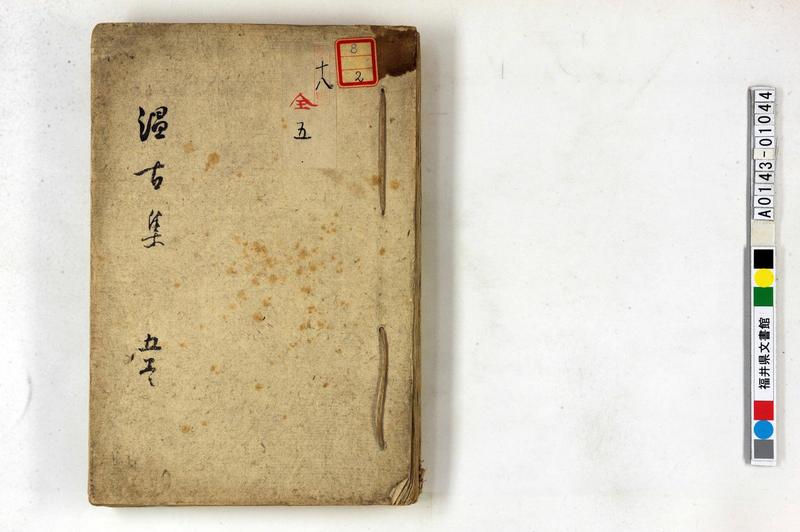 8
2
十八
全
五
温古集
A0143-01044
福井県文書館